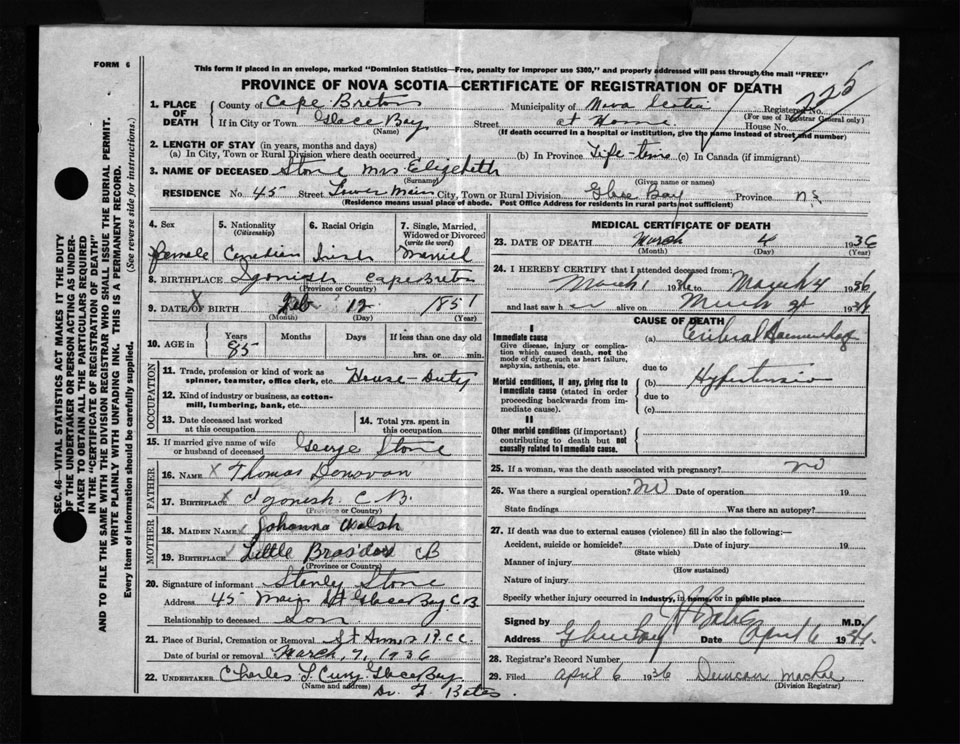 FORM 6
This form if placed in an envelope, marked "Dominion Statistics—Free, penalty for improper use $300," and properly addressed will pass through the mail "FREE"
PROVINCE OF NOVA SCOTIA—CERTIFICATE OF REGISTRATION OF DEATH
1. PLACE OF DEATH
County of Cape Breton Municipality of Nova Scotia Registered No. 225
(For use of Registrar General only)
If in City or Town Glace Bay Street at Home House No.
(Name) (If death occurred in a hospital or institution, give the name instead of street and number)
2. LENGTH OF STAY (in years, months and days)
(a) In City, Town or Rural Division where death occurred (b) In Province Life time (c) In Canada (if immigrant)
3. NAME OF DECEASED Stone Mrs Elizebeth
(Surname) (Given name or names)
RESIDENCE No. 45 Street Lower Main City, Town or Rural Division Glace Bay Province N.S
(Residence means usual place of abode. Post Office Address for residents in rural parts not sufficient)
4. Sex 5. Nationality (Citizenship) 6. Racial Origin 7. Single, Married, Widowed or Divorced (write the word)
Female Canadian Irish Married
8. BIRTHPLACE Igonish Cape Breton
(Province or Country)
9. DATE OF BIRTH Feb 12 1851
(Month) (Day) (Year)
10. AGE in Years Months Days If less than one day old
85 hrs. or min.
OCCUPATION
11. Trade, profession or kind of work as spinner, teamster, office clerk, etc. House-Duty
12. Kind of industry or business, as cotton-mill, lumbering, bank, etc.
13. Date deceased last worked at this occupation 14. Total yrs. spent in this occupation
15. If married give name of wife or husband of deceased George Stone
FATHER
16. NAME X Thomas Donovan
17. BIRTHPLACE X Igonish C.B.
(Province or Country)
MOTHER
18. MAIDEN NAME Johanna Walsh
19. BIRTHPLACE Little Bras'dor CB
(Province or Country)
20. Signature of informant Stanly Stone
Address 45 Main St Glace Bay C.B.
Relationship to deceased Son
21. Place of Burial, Cremation or Removal St Annes R.C.C.
Date of burial or removal March, 7, 1936
22. UNDERTAKER Charles Curry Glace Bay
(Name and address)
Dr. F Bates.
MEDICAL CERTIFICATE OF DEATH
23. DATE OF DEATH March 4 1936
(Month) (Day) (Year)
24. I HEREBY CERTIFY that I attended deceased from:
March 1 1936 to March 4 1936
and last saw her alive on March 1936
CAUSE OF DEATH
I
Immediate cause
Give disease, injury or complication which caused death, not the mode of dying, such as heart failure, asphyxia, asthenia, etc.
(a) Cerebral Haemorrhage
due to
Morbid conditions, if any, giving rise to immediate cause (stated in order proceeding backwards from immediate cause).
(b) Hypertension
due to
(c)
II
Other morbid conditions (if important) contributing to death but not causally related to immediate cause.
25. If a woman, was the death associated with pregnancy? no
26. Was there a surgical operation? no Date of operation 19
State findings Was there an autopsy?
27. If death was due to external causes (violence) fill in also the following:—
Accident, suicide or homicide? Date of injury 19
(State which)
Manner of injury
(How sustained)
Nature of injury
Specify whether injury occurred in industry, in home, or in public place
Signed by Bates M.D.
Address Glace Bay Date April 6 1936.
28. Registrar's Record Number
29. Filed April 6 1936 Duncan MacRae
(Division Registrar)
SEC. 46—VITAL STATISTICS ACT MAKES IT THE DUTY
OF THE UNDERTAKER OR PERSON ACTING AS UNDER-
TAKER TO OBTAIN ALL THE PARTICULARS REQUIRED
IN THE "CERTIFICATE OF REGISTRATION OF DEATH"
AND TO FILE THE SAME WITH THE DIVISION REGISTRAR WHO SHALL ISSUE THE BURIAL PERMIT.
WRITE PLAINLY WITH UNFADING INK. THIS IS A PERMANENT RECORD.
Every item of information should be carefully supplied. (See reverse side for instructions.)